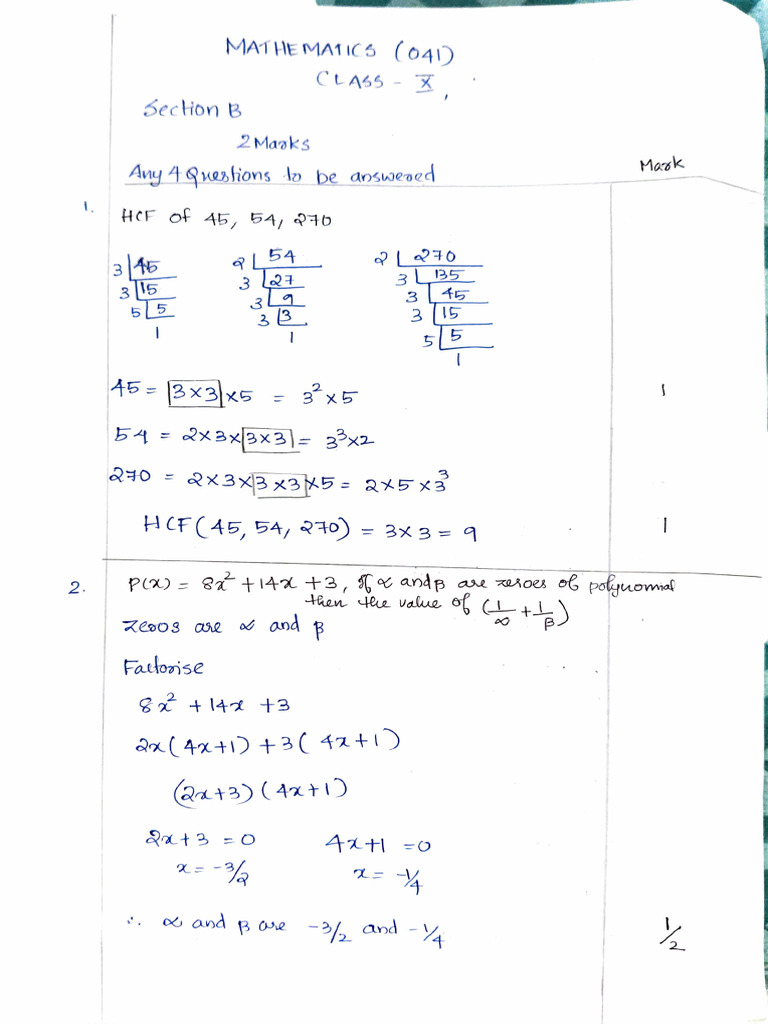 MATHEMATICS (041)
CLASS - X,
Section B
2 Marks
Any 4 Questions to be answered
Mark
1. HCF of 45, 54, 270
3 | 45   2 | 54   2 | 270
3 | 15   3 | 27   3 | 135
5 | 5   3 | 9   3 | 45
1   3 | 3   3 | 15
1   5 | 5
1
45 = 3×3 ×5 = 3² ×5   1
54 = 2×3×3×3 = 3³×2
270 = 2×3×3×3×5 = 2×5×3³
HCF(45, 54, 270) = 3×3 = 9   1
2. P(x) = 8x² +14x +3, If α and β are zeroes of polynomial
then the value of (1/α + 1/β)
zeros are α and β
Factorise
8x² + 14x + 3
2x(4x+1) +3(4x+1)
(2x+3)(4x+1)
2x+3 = 0   4x+1 = 0
x = -3/2   x = -1/4
∴ α and β are -3/2 and -1/4   1/2